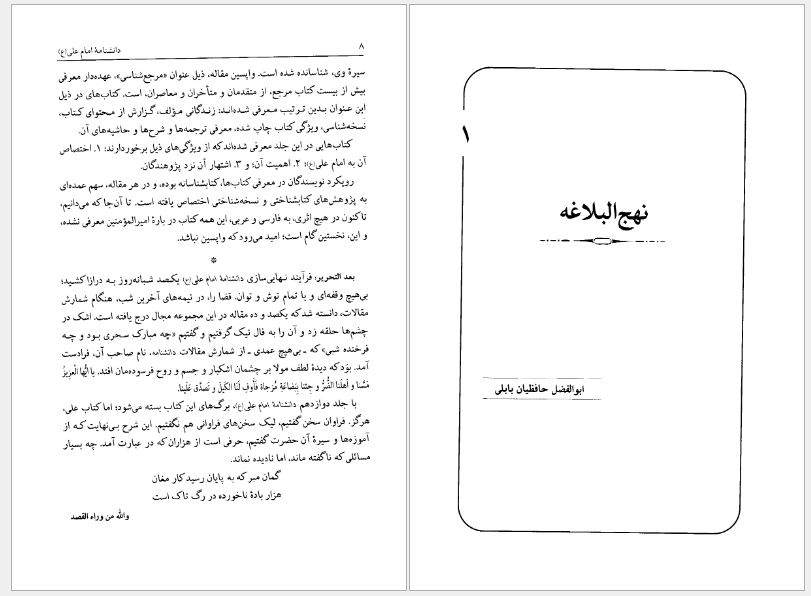 ۸
دانشنامهٔ امام علی(ع)
سیرهٔ وی، شناسانده شده است. واپسین مقاله، ذیل عنوان «مرجع‌شناسی»، عهده‌دار معرفی
بیش از بیست کتاب مرجع، از متقدمان و متأخران و معاصران، است. کتاب‌های در ذیل
این عنوان بدین ترتیب معرفی شده‌اند: زندگانی مؤلف، گزارش از محتوای کتاب،
نسخه‌شناسی، ویژگی کتاب چاپ شده، معرفی ترجمه‌ها و شرح‌ها و حاشیه‌های آن.
کتاب‌هایی در این جلد معرفی شده‌اند که از ویژگی‌های ذیل برخوردارند: ۱. اختصاص
آن به امام علی(ع)؛ ۲. اهمیت آن؛ و ۳. اشتهار آن نزد پژوهندگان.
رویکرد نویسندگان در معرفی کتاب‌ها، کتابشناسانه بوده، و در هر مقاله، سهم عمده‌ای
به پژوهش‌های کتابشناختی و نسخه‌شناختی اختصاص یافته است. تا آن‌جا که می‌دانیم،
تاکنون در هیچ اثری، به فارسی و عربی، این همه کتاب در بارهٔ امیرالمؤمنین معرفی نشده،
و این، نخستین گام است؛ امید می‌رود که واپسین نباشد.
*
بعد التحریر: فرآیند نهایی‌سازی دانشنامهٔ امام علی(ع) یکصد شبانه‌روز به درازا کشید؛
بی‌هیچ وقفه‌ای و با تمام توش و توان. قضا را، در نیمه‌های آخرین شب، هنگام شمارش
مقالات، دانسته شد که یکصد و ده مقاله در این مجموعه مجال درج یافته است. اشک در
چشم‌ها حلقه زد و آن را به فال نیک گرفتیم و گفتیم «چه مبارک سحری بود و چه
فرخنده شبی» که ـ بی‌هیچ عمدی ـ از شمارش مقالات دانشنامه، نام صاحب آن، فرادست
آمد. بوَد که دیدهٔ لطف مولا بر چشمان اشکبار و جسم و روح فرسوده‌مان افتد. یا أیُّها الْعَزِیزُ
مَسَّنا و أهلَنَا الضُّرُّ و جِئنا بِبَضاعَةٍ مُزجاة فَأوفِ لَنَا الکَیلَ وَ تَصَدَّق عَلَینا.
با جلد دوازدهم دانشنامهٔ امام علی(ع)، برگ‌های این کتاب بسته می‌شود؛ اما کتاب علی،
هرگز. فراوان سخن گفتیم، لیک سخن‌های فراوانی هم نگفتیم. این شرح بی‌نهایت که از
آموزه‌ها و سیرهٔ آن حضرت گفتیم، حرفی است از هزاران که در عبارت آمد. چه بسیار
مسائلی که ناگفته ماند، اما نادیده نماند.
گمان مبر که به پایان رسید کار مغان
هزار بادهٔ ناخورده در رگ تاک است
والله من وراء القصد
۱
نهج‌البلاغه
ابوالفضل حافظیان بابلی